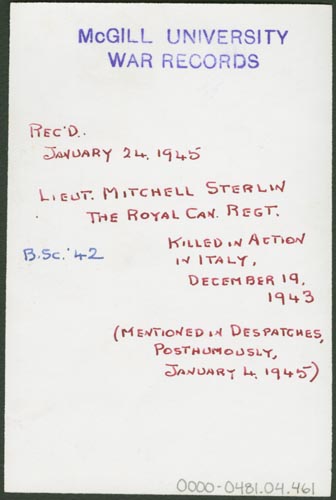 McGILL UNIVERSITY
WAR RECORDS
REC'D..
JANUARY 24, 1945
LIEUT. MITCHELL STERLIN
THE ROYAL CAN. REGT.
B.Sc. '42
KILLED IN ACTION
IN ITALY,
DECEMBER 19,
1943
(MENTIONED IN DESPATCHES,
POSTHUMOUSLY,
JANUARY 4, 1945)
0000-0481.04.461